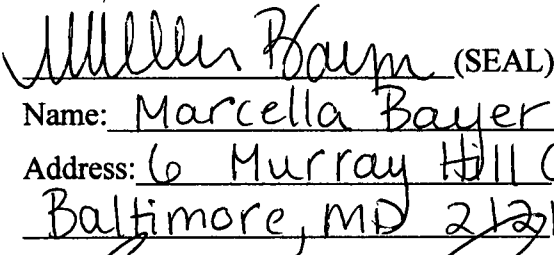 (SEAL)
Name: Marcella Bayer
Address: 6 Murray Hill C
Baltimore, MD 2121